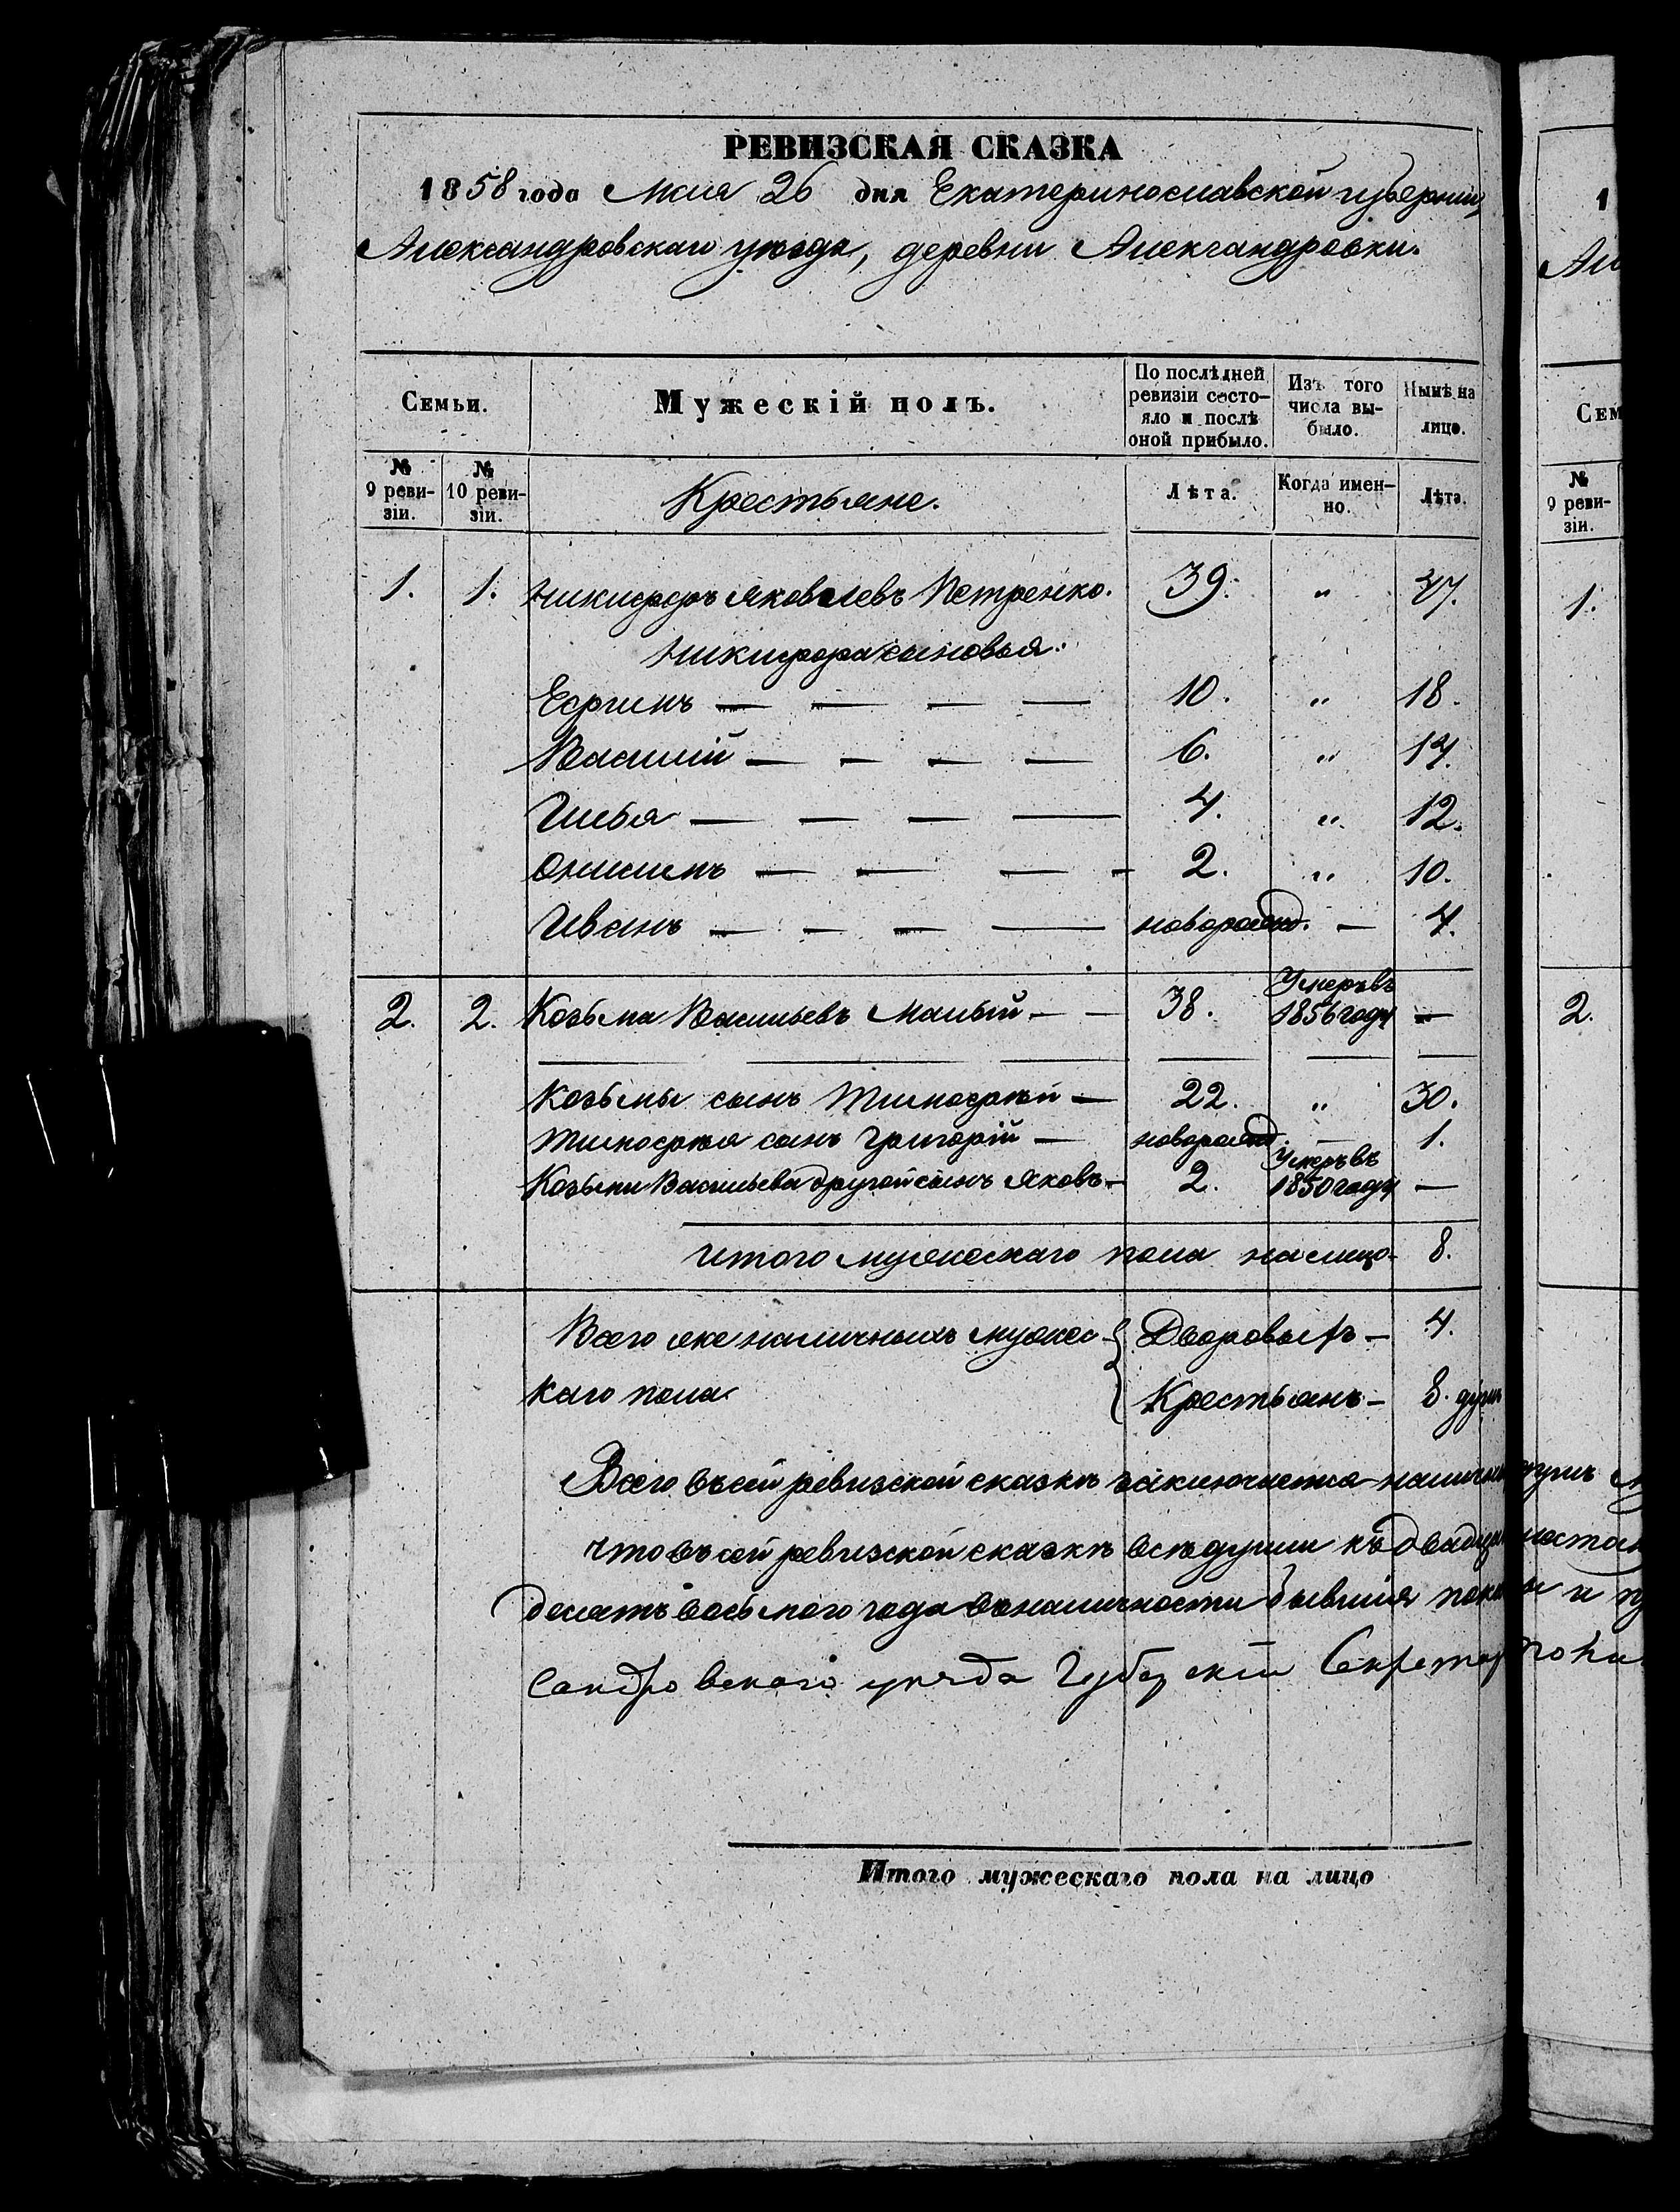 РЕВИЗСКАЯ СКАЗКА
1858 года Мая 26 дня Екатеринославской губернии,
Александровскаго уезда, деревни Александровки.
Семьи. Мужескій полъ. По послѣдней ревизіи состояло и послѣ оной прибыло. Изъ того числа выбыло. Нынѣ на лицо.
№ 9 ревизіи. № 10 ревизіи. Крестьяне. Лѣта. Когда именно. Лѣта.
1. 1. Никифоръ Яковлевъ Петренко. 39. " 47.
Никифора сыновья:
Ефимъ — — — — 10. " 18.
Василій — — — — 6. " 14.
Илья — — — — 4. " 12.
Онисимъ — — — - 2. " 10.
Иванъ — — — — новорожд. — 4.
2. 2. Козьма Васильевъ Малый - - 38. Умеръ въ 1856 году —
Козьмы сынъ Тимофѣй — 22. " 30.
Тимофѣя сынъ Григорій — новорожд. — 1.
Козьмы Васильева другой сынъ Яковъ - 2. Умеръ въ 1850 году —
Итого мужескаго пола на лицо - 8.
Всего же наличныхъ мужес- { Дворовыхъ — 4.
каго пола { Крестьянъ — 8. душъ
Всего въ сей ревизской сказкѣ заключается налич душъ
что въ сей ревизской сказкѣ всѣ души къ двадца
десятъ восьмого года въ наличности бывшія пока и
сандровского уѣзда Губерскій Секретар
Итого мужескаго пола на лицо
1
Ал
Сем
№ 9 ревизіи.
1.
2.